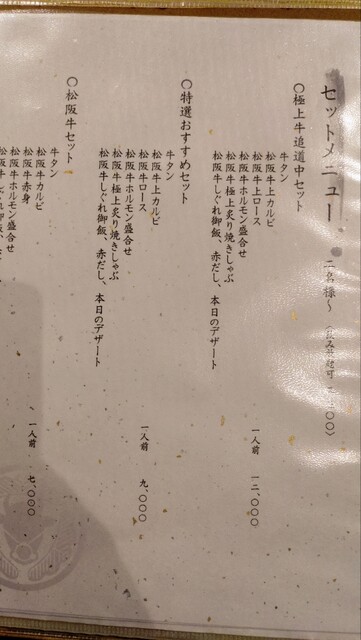 セットメニュー 二名様〜
〇極上牛追道中セット
牛タン
松阪牛上カルビ
松阪牛上ロース
松阪牛ホルモン盛合せ
松阪牛極上炙り焼きしゃぶ
松阪牛しぐれ御飯、赤だし、本日のデザート
一人前 一二、〇〇〇
〇特選おすすめセット
牛タン
松阪牛上カルビ
松阪牛ロース
松阪牛ホルモン盛合せ
松阪牛極上炙り焼きしゃぶ
松阪牛しぐれ御飯、赤だし、本日のデザート
一人前 九、〇〇〇
〇松阪牛セット
牛タン
松阪牛カルビ
松阪牛赤身
松阪牛ホルモン盛合せ
松阪牛しぐれ御飯、
一人前 七、〇〇〇